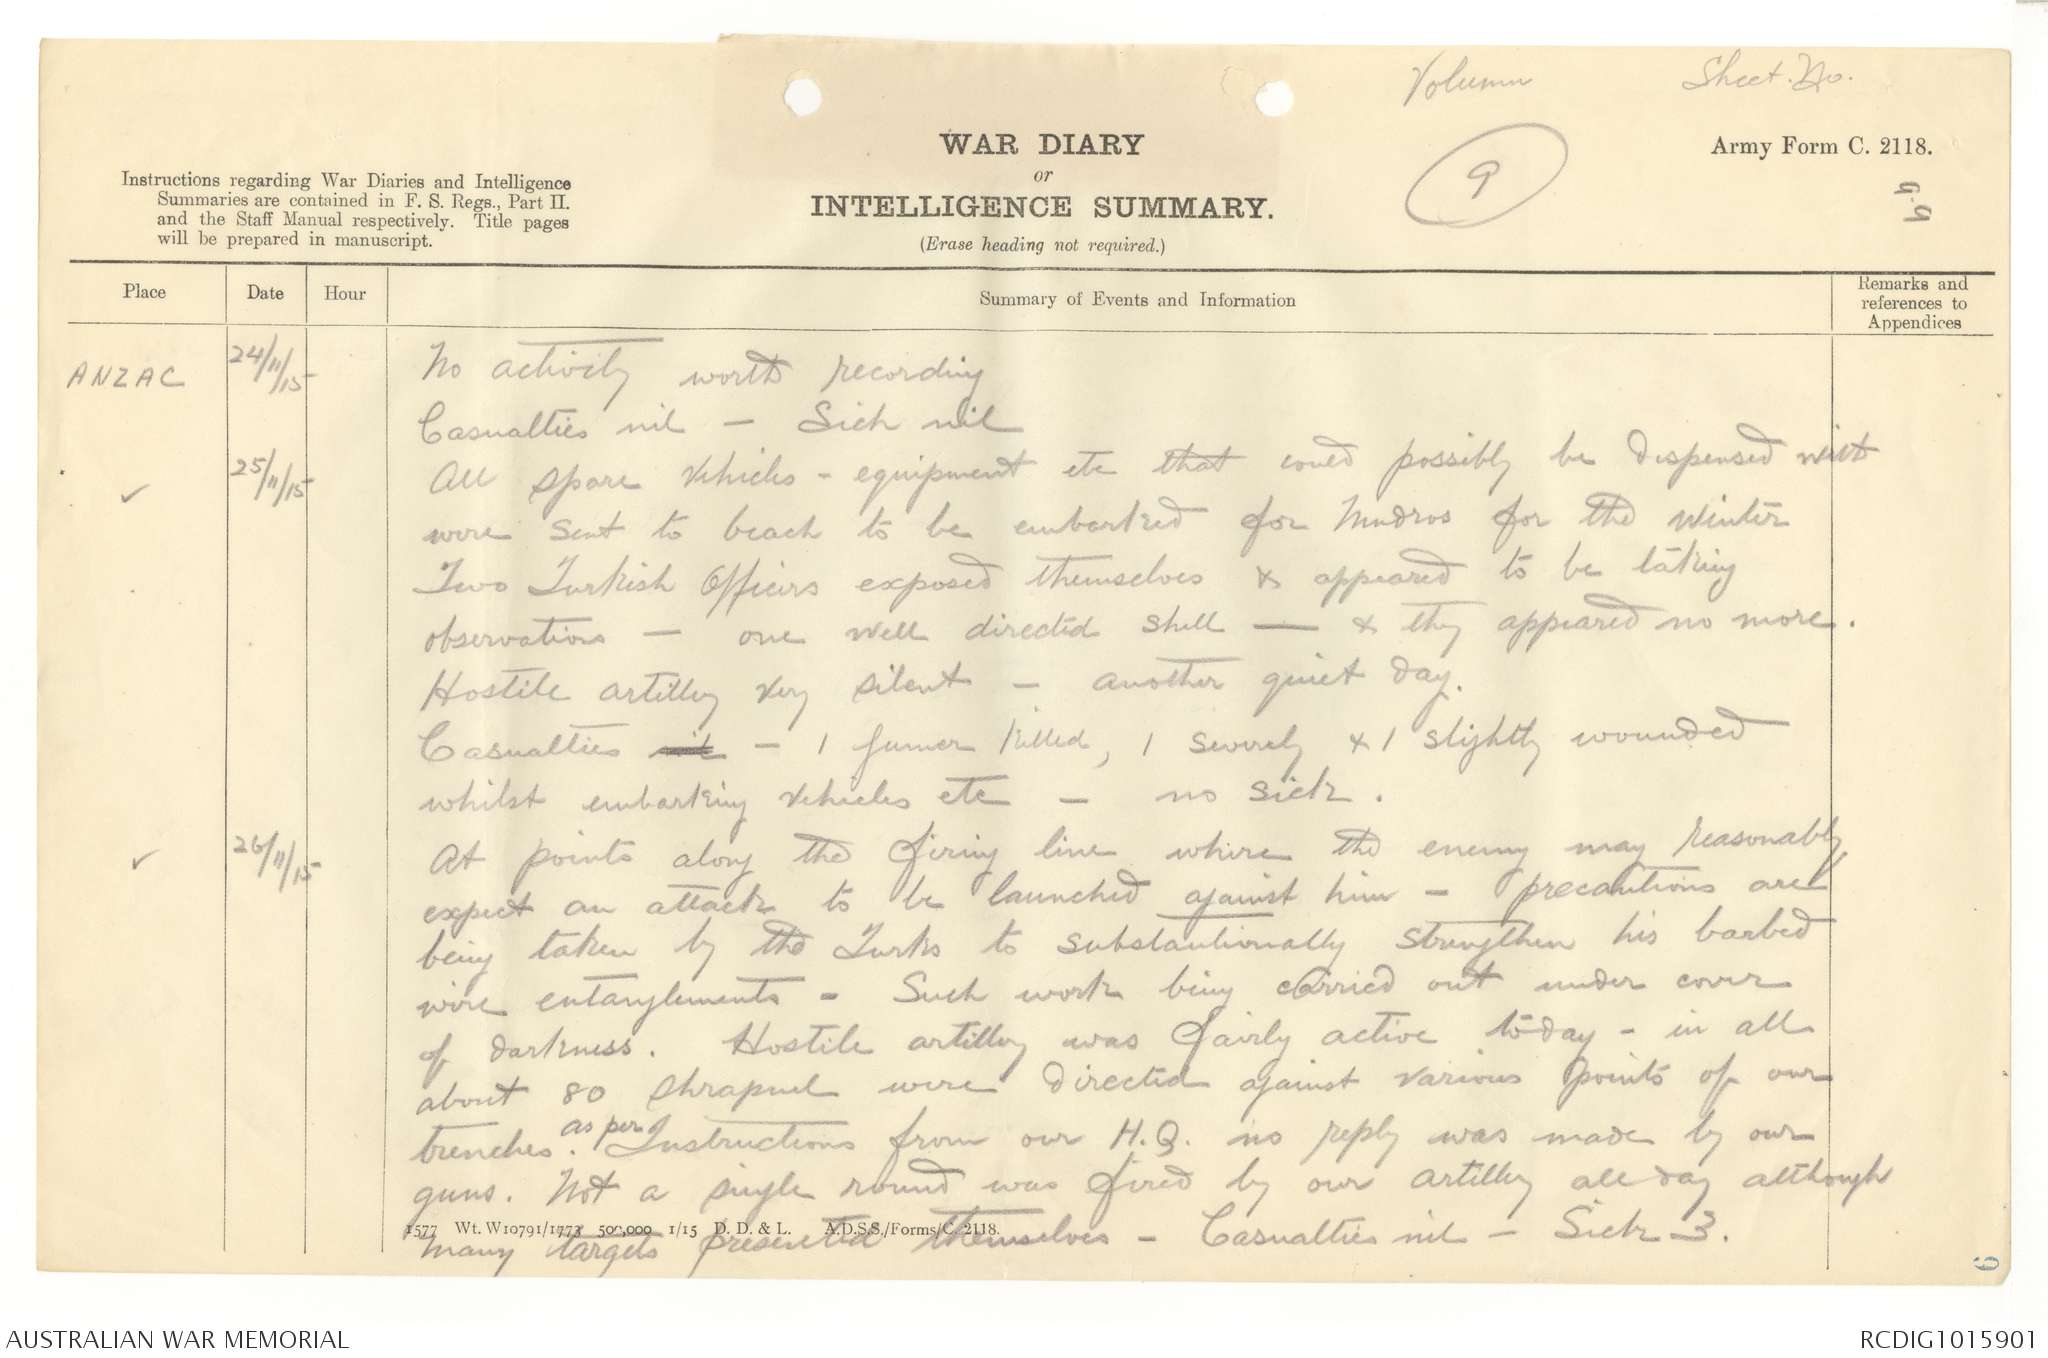 Volumn Sheet. No.
WAR DIARY
or
INTELLIGENCE SUMMARY.
(Erase heading not required.)
9
Army Form C. 2118.
9.9
Instructions regarding War Diaries and Intelligence
Summaries are contained in F. S. Regs., Part II.
and the Staff Manual respectively. Title pages
will be prepared in manuscript.
Place Date Hour Summary of Events and Information Remarks and
references to
Appendices
ANZAC 24/11/15 No activity worth recording
Casualties nil - Sick nil
✓ 25/11/15 All spare vehicles - equipment etc that could possibly be dispensed with
were sent to beach to be embarked for Mudros for the winter
Two Turkish Officers exposed themselves & appeared to be taking
observations - one well directed shell — & they appeared no more.
Hostile artillery very silent - another quiet day.
Casualties nil - 1 gunner killed, 1 severely & 1 slightly wounded
whilst embarking vehicles etc - no sick.
✓ 26/11/15 At points along the firing line where the enemy may reasonably
expect an attack to be launched against him - precautions are
being taken by the Turks to substautionally strengthen his barbed
wire entanglements - Such work being carried out under cover
of darkness. Hostile artillery was fairly active to-day - in all
about 80 shrapnel were directed against various points of our
trenches. as per Instructions from our H.Q. no reply was made by our
guns. Not a single round was fired by our artillery all day although
many targets presented themselves - Casualties nil - Sick 3.
1577 Wt. W10791/1773 500,000 1/15 D. D. & L. A.D.S.S./Forms/C. 2118.
6
AUSTRALIAN WAR MEMORIAL RCDIG1015901